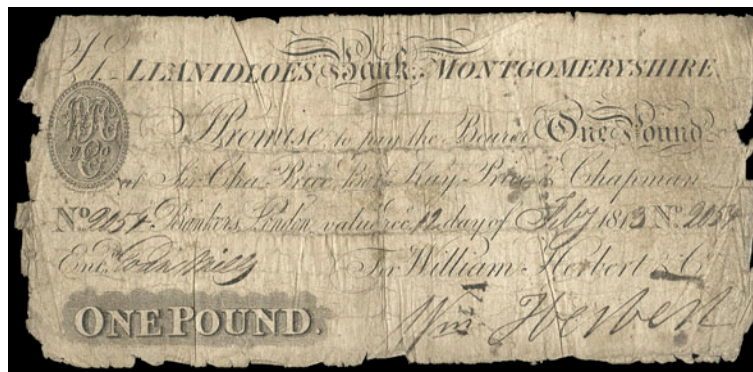 £1. LLANIDLOES Bank. MONTGOMERYSHIRE
I Promise to pay the Bearer One Pound
at Sir Cha. Price, Bart. Kay, Price & Chapman
No. 2054 Bankers, London, value recd. 12 day of Feby 1813 No. 2054
Entd. For William Herbert & Co.
ONE POUND. Wm Herbert